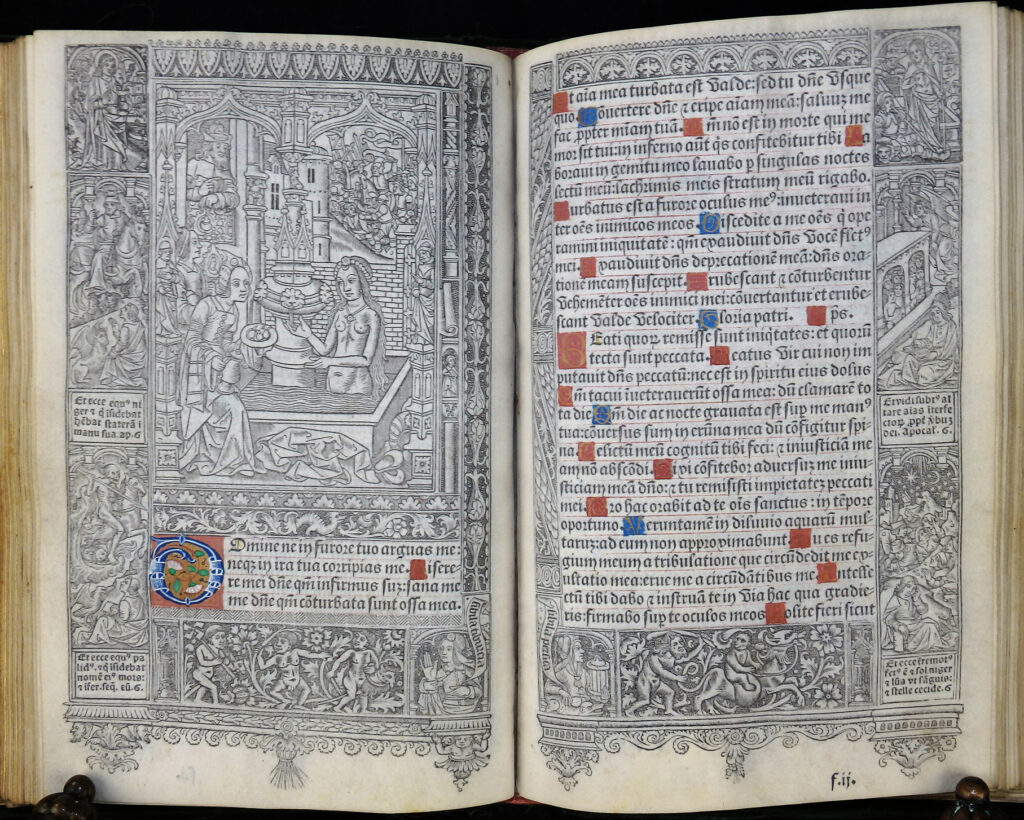 Et ecce equꝰ ni
ger ⁊ q̄ īsidebat
hēbat staterā ī
manu sua. ap. 6
Omine ne in furore tuo arguas me:
neqꝫ in ira tua corripias me. Misere-
re mei dn̄e qm̄ infirmus suꝫ: sana me
me dn̄e qm̄ cōturbata sunt ossa mea.
Et ecce equꝰ pa
lidꝰ. ⁊ q̄ īsidebat
nomē eiꝰ mors:
⁊ īfer. seq̄. eū. 6
Et aīa mea turbata est valde: sed tu dn̄e vsque
quo. Cōuertere dn̄e ⁊ eripe aīam meā: saluuꝫ me
fac ꝓpter mīam tuā. Qm̄ nō est in morte qui me
mor sit tui: in inferno aut q̄s confitebitur tibi La
boraui in gemitu meo lauabo ꝑ singulas noctes
lectū meū: lachrimis meis stratum meū rigabo.
Turbatus est a furore oculus meꝰ: inueteraui in
ter oēs inimicos meos. Discedite a me oēs q̄ ope
ramini iniquitatē: qm̄ exaudiuit dn̄s vocē fletꝰ
mei. Exaudiuit dn̄s deprecationē meā: dn̄s ora
tionē meam suscepit. Erubescant ⁊ cōturbentur
vehemēter oēs inimici mei: cōuertantur et erube-
scant valde velociter. Gloria patri. ps.
Beati quorꝫ remisse sunt iniq̄tates: et quorū
tecta sunt peccata. Beatus vir cui non im
putauit dn̄s peccatū: nec est in spiritu eius dolus
Qm̄ tacui inueterauerūt ossa mea: dū clamarē to
ta die. Qm̄ die ac nocte grauata est suꝑ me manꝰ
tua: cōuersus sum in erūna mea dū cōfigitur spi-
na. Delictū meū cognitū tibi feci: ⁊ iniusticiam me
am nō abscōdi. Dixi cōfitebor aduersuꝫ me iniu-
sticiam meā dn̄o: ⁊ tu remisisti impietateꝫ peccati
mei. Pro hac orabit ad te oīs sanctus: in tēpore
oportuno. Veruntamē in diluuio aquarū mul-
taruꝫ: ad eum non approximabunt. Tu es refu-
gium meum a tribulatione que circūdedit me ex
ultatio mea: erue me a circūdātibus me. Intelle
ctū tibi dabo ⁊ instruā te in via hac qua gradie-
ris: firmabo suꝑ te oculos meos. Nolite fieri sicut
Et vidi subtꝰ al
tare aīas īterfe
ctorꝫ .ꝓpt̄ v̄buꝫ
dei. Apocal. 6.
Et ecce terremotꝰ
fctꝰ ē ⁊ sol niger
⁊ lūa vt sāguis:
⁊ stelle cecide. 6
f.ij.